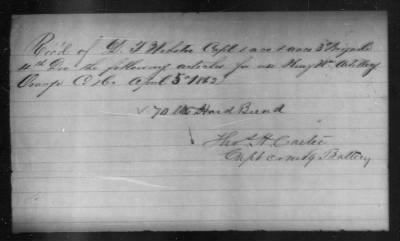 Rec'd of D. F. Webster Capt & a c s 5th Brigade
4th Div the following articles for use Henry Artillery
Orange C. H. April 5th 1862
✓ 70 lbs Hard Bread
Thos. H. Carter
Capt comdg Battery